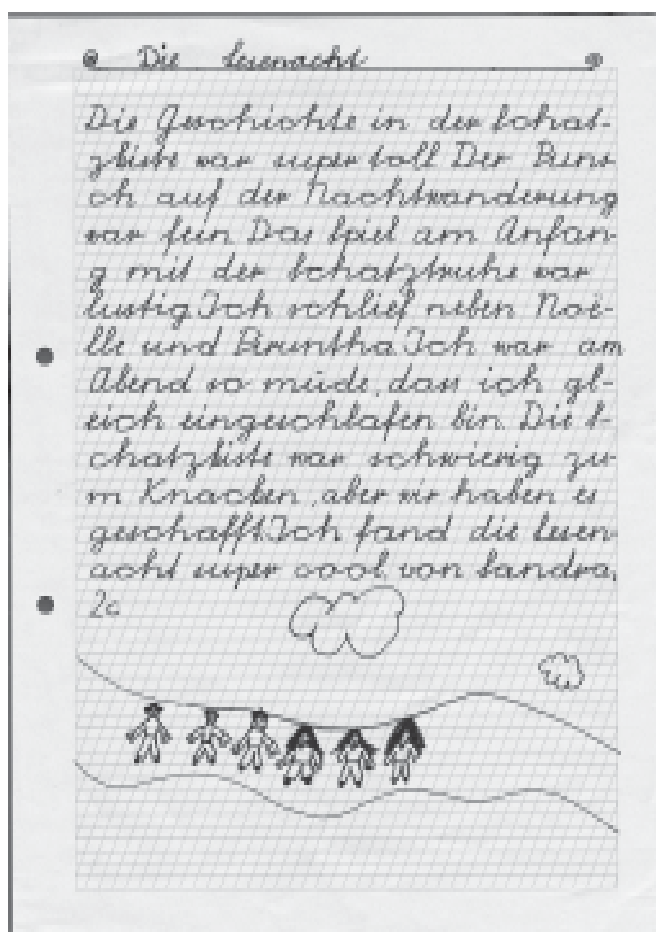 Die Lesenacht
Die Geschichte in der Schat-
zkiste war super toll. Der Puns
ch auf der Nachtwanderung
war fein. Das Spiel am Anfan-
g mit der Schatztruhe war
lustig. Ich schlief neben Noë-
lle und Biruntha. Ich war am
Abend so müde, dass ich gl-
eich eingeschlafen bin. Die S-
chatzkiste war schwierig zu-
m Knacken, aber wir haben es
geschafft. Ich fand die Lesen-
acht super cool. von Sandra,
2c